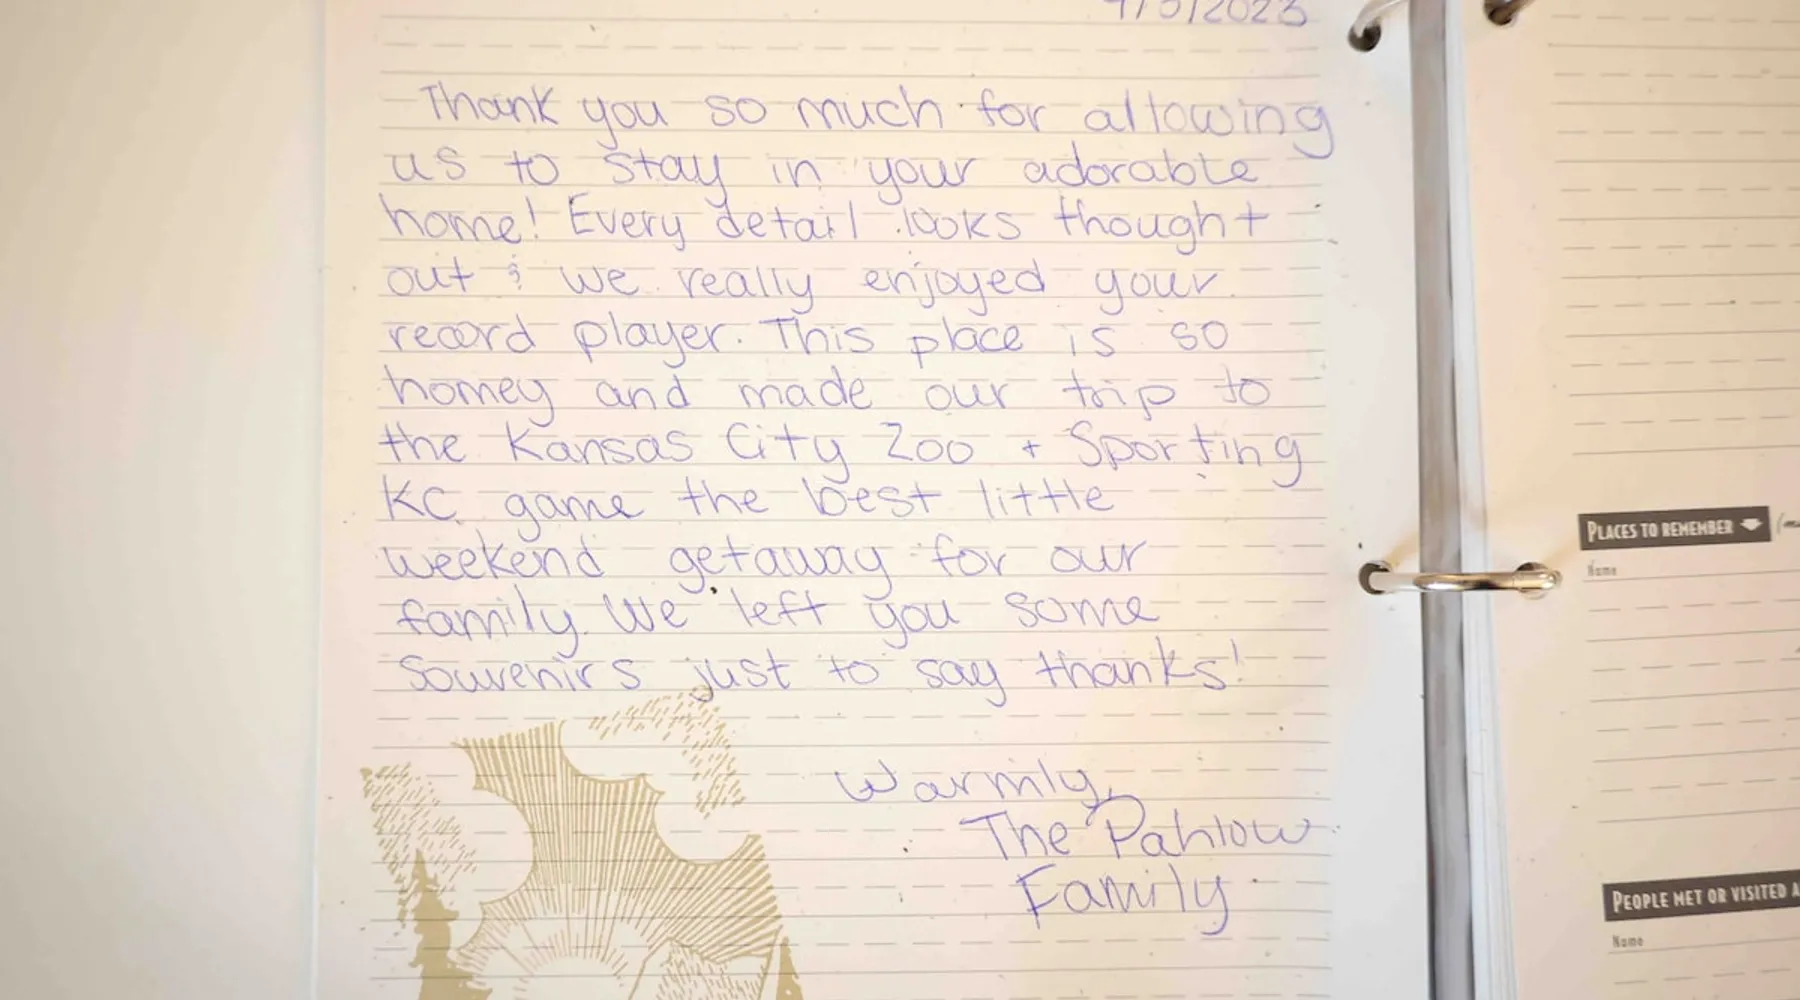 Thank you so much for allowing
us to stay in your adorable
home! Every detail looks thought
out & we really enjoyed your
record player. This place is so
homey and made our trip to
the Kansas City Zoo + Sporting
KC game the best little
weekend getaway for our
family. We left you some
souvenirs just to say thanks!
Warmly,
The Pahlow
Family
PLACES TO REMEMBER
Name
PEOPLE MET OR VISITED
Name